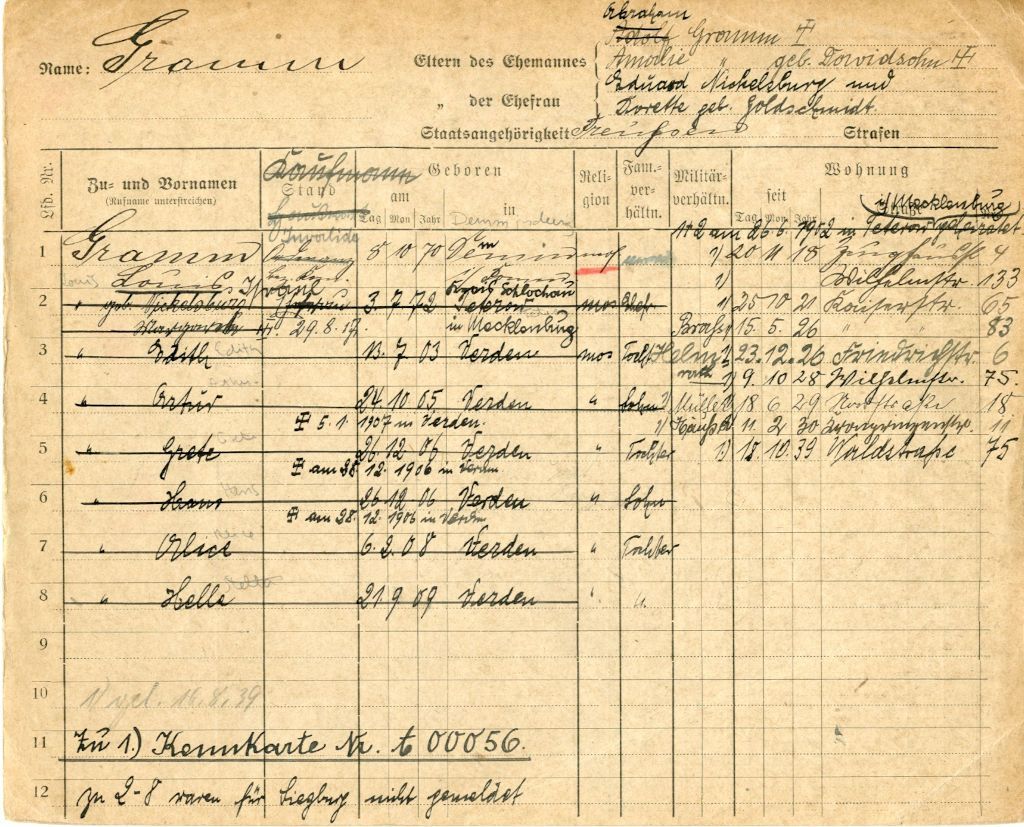 Abraham
Name: Gramm Eltern des Ehemannes Adolf Gramm
Amalie " geb. Davidsohn
" der Ehefrau Eduard Nickelsburg und
Dorette geb. Goldschmidt
Staatsangehörigkeit Preußen Strafen
Lfd. Nr. Zu- und Vornamen (Rufname unterstreichen) Stand Kaufmann Geboren am Tag Mon Jahr in Religion Fam.-verhältn. Militärverhältn. seit Tag Mon Jahr Wohnung
i/Mecklenburg
1+2 am 26.6.1902 in Teterow geheiratet
Invalide
1 Gramm 5 10 70 Demmin mos 1) 20 11 18 Zeughausstr. 4
Louis Israel 1) Wilhelmstr. 133
Kreis Schlochau
2 " geb. Nickelsburg Ehefrau 3. 7 72 Teterow mos Ehefr 1) 25 10 21 Kaiserstr. 65
Margarete 29.8.17. in Mecklenburg 15. 5. 26 " " 83
3 " Edith Edith 13. 7 03 Verden mos Tocht 1) 23.12.26 Friedrichstr. 6
1) 9. 10 28 Wilhelmstr. 75.
4 " Artur 24. 10 05 Verden " Sohn Müller 18 6 29 18
5. 1. 1907 in Verden. 11 2 30 Kronprinzenstr. 11
5 " Grete 26 12 06 Verden " Tochter 1) 18. 10. 39 Waldstraße 75
am 28. 12. 1906 in Verden
6 " Hans Hans 26 12 06 Verden " Sohn
am 28. 12. 1906 in Verden
7 " Alice 6. 2. 08 Verden " Tochter
8 " Helle 21. 9 09 Verden " "
9
10
11 Zu 1.) Kennkarte Nr. t 00056.
12 zu 2-8 waren für Siegburg nicht gemeldet